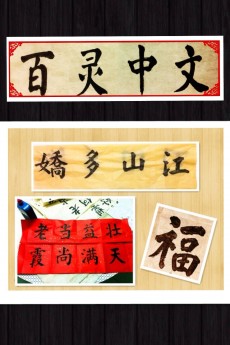 百灵中文
江山多嬌
老当益壮
霞尚满天
福